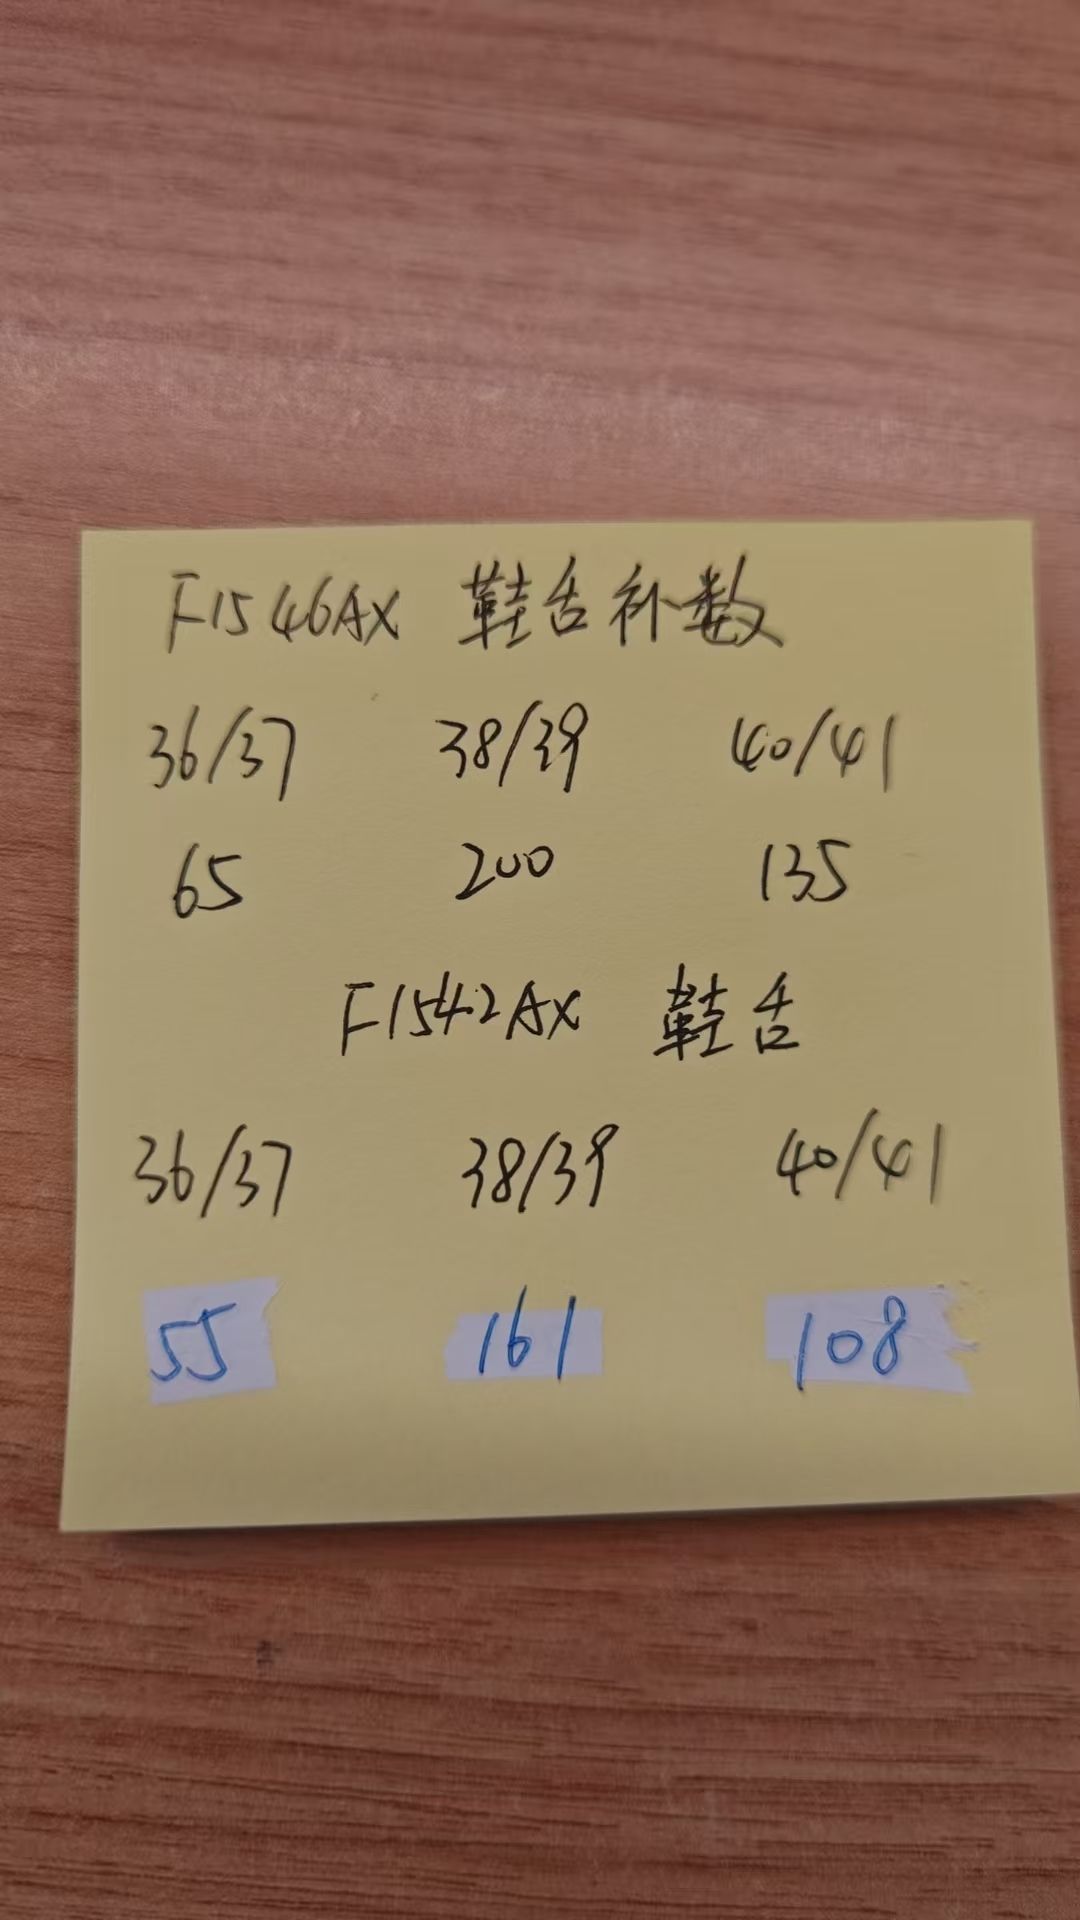 F1546AX 鞋舌补数
36/37 38/39 40/41
65 200 135
F1542AX 鞋舌
36/37 38/39 40/41
55 161 108